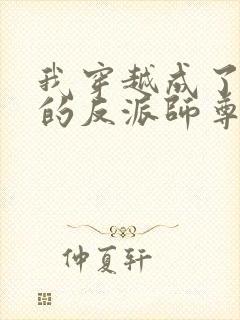 我穿越成了
的反派师尊
仲夏轩